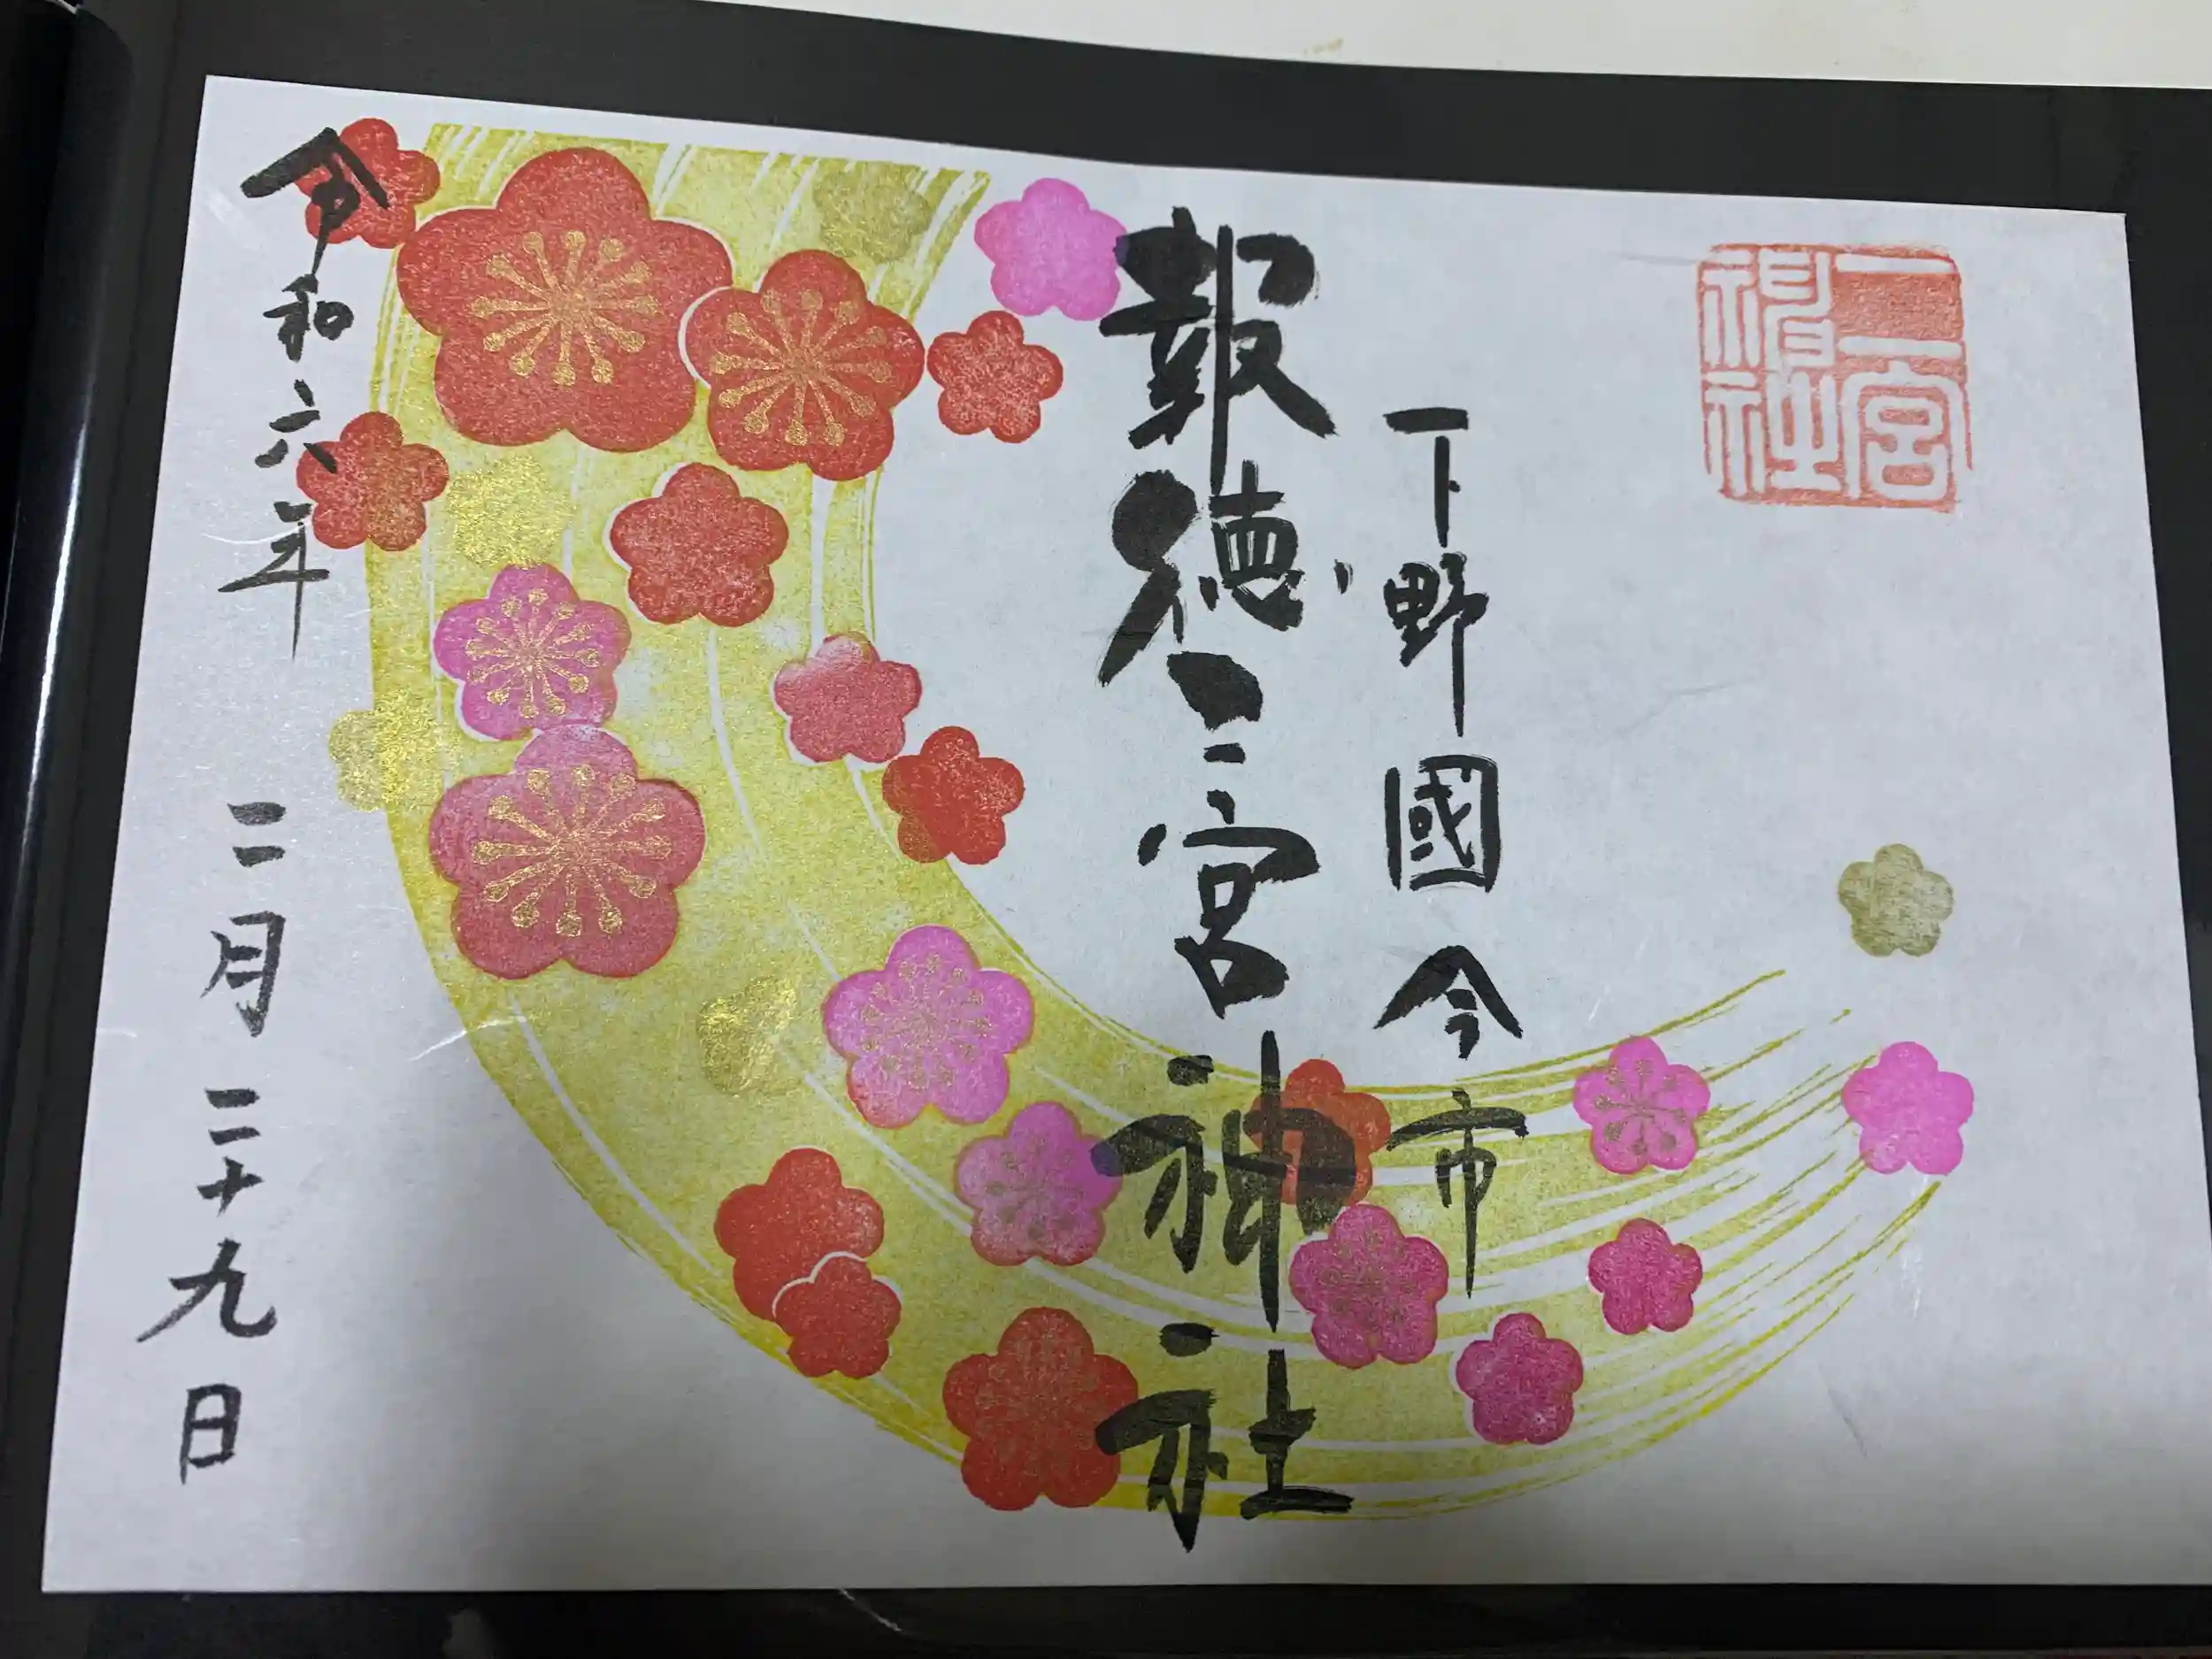 二宮
神社
下野國今市
報徳二宮神社
令和六年 二月二十九日